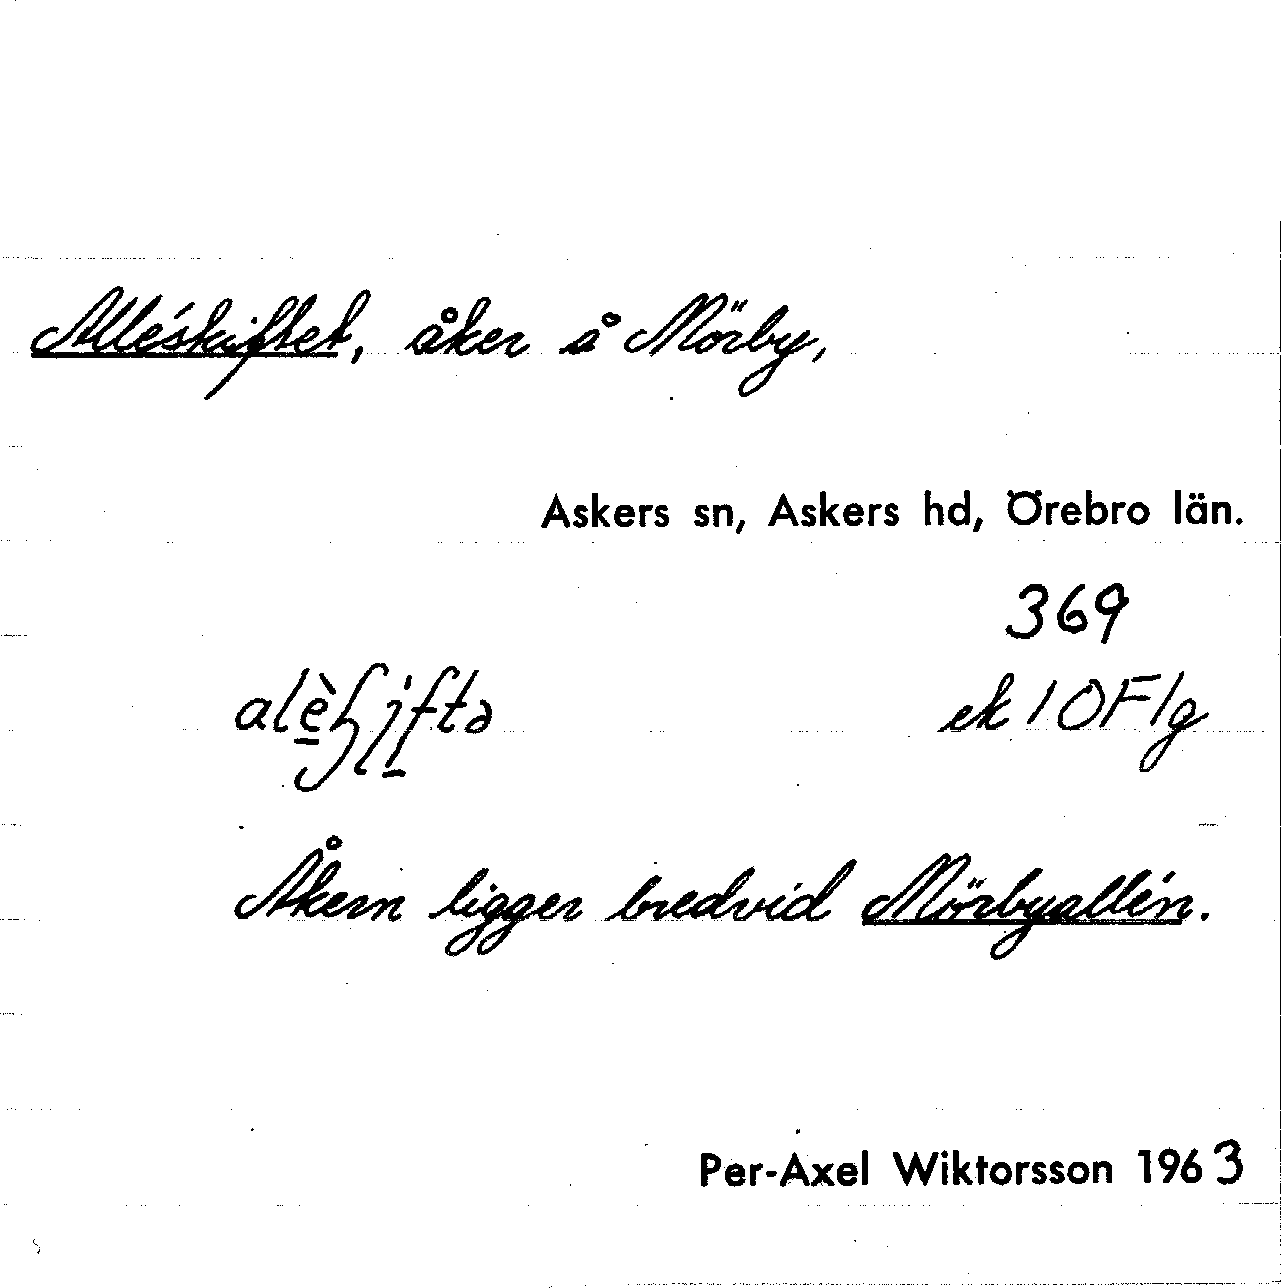 Alléskiftet, åker å Mörby,
Askers sn, Askers hd, Örebro län.
369
ek 10F1g
Åkern ligger bredvid Mörbyallén.
Per-Axel Wiktorsson 1963